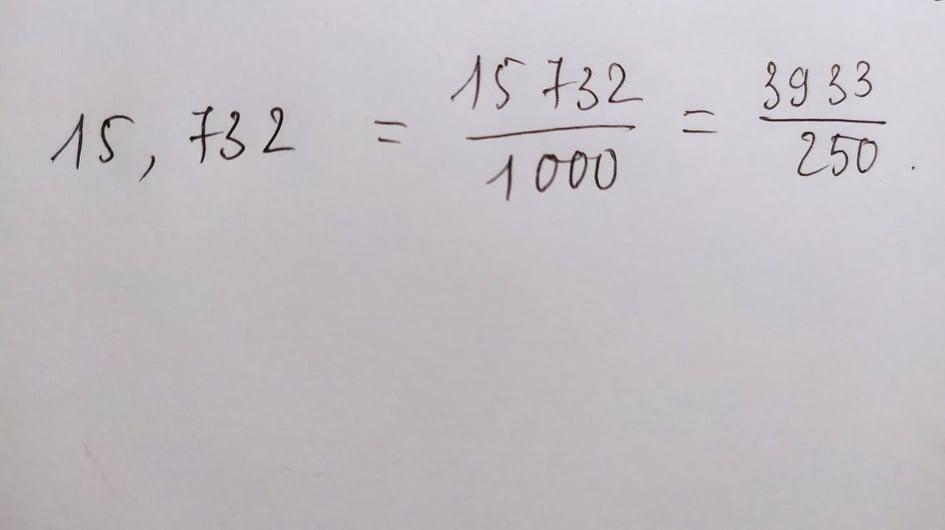 15,732 = \frac{15 732}{1000} = \frac{3933}{250}.